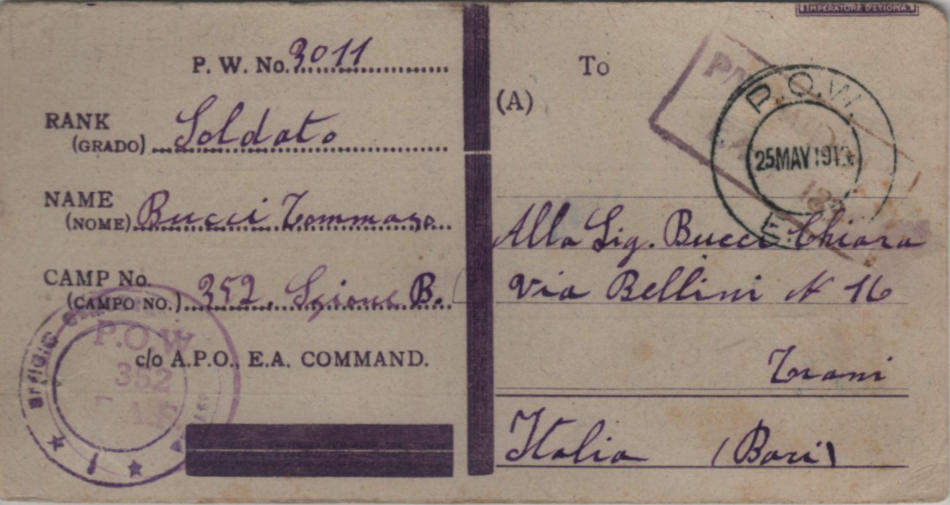 IMPERATORE D'ETIOPIA
P. W. No. 3011
RANK
(GRADO) Soldato
NAME
(NOME) Bucci Tommaso
CAMP No.
(CAMPO NO.) 352. Szione B.
c/o A.P.O., E.A. COMMAND.
P.O.W
352
To
(A)
P.O.W.
25 MAY 191
E.
Alla Sig. Bucci Chiara
Via Bellini N 16
Trani
Italia (Bari)